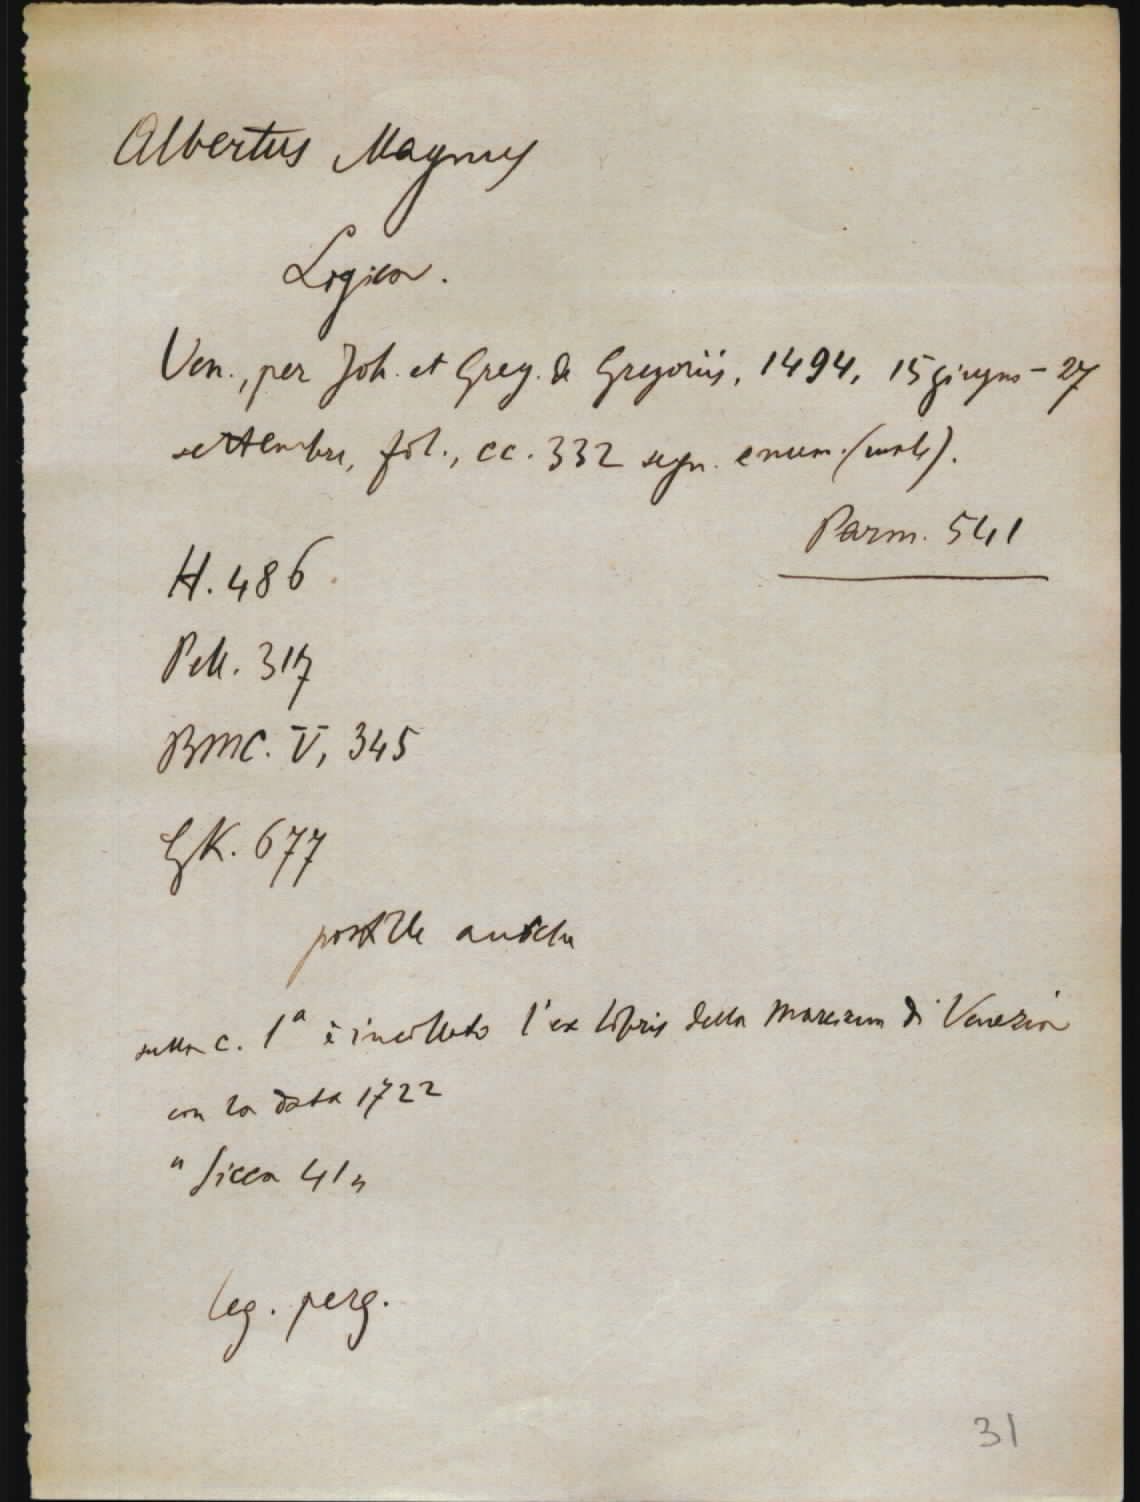 Albertus Magnus
Logica.
Ven., per Joh. et Greg. de Gregoriis, 1494, 15 giugno - 27
settembre, fol., cc. 332 segn. e num. (male).
Parm. 541
H. 486
Pell. 317
BMC. V, 345
GK. 677
postille antiche
sulla c. 1ª è incollato l'ex libris della Marciana di Venezia
con la data 1722
" sicca 41 "
leg. perg.
31